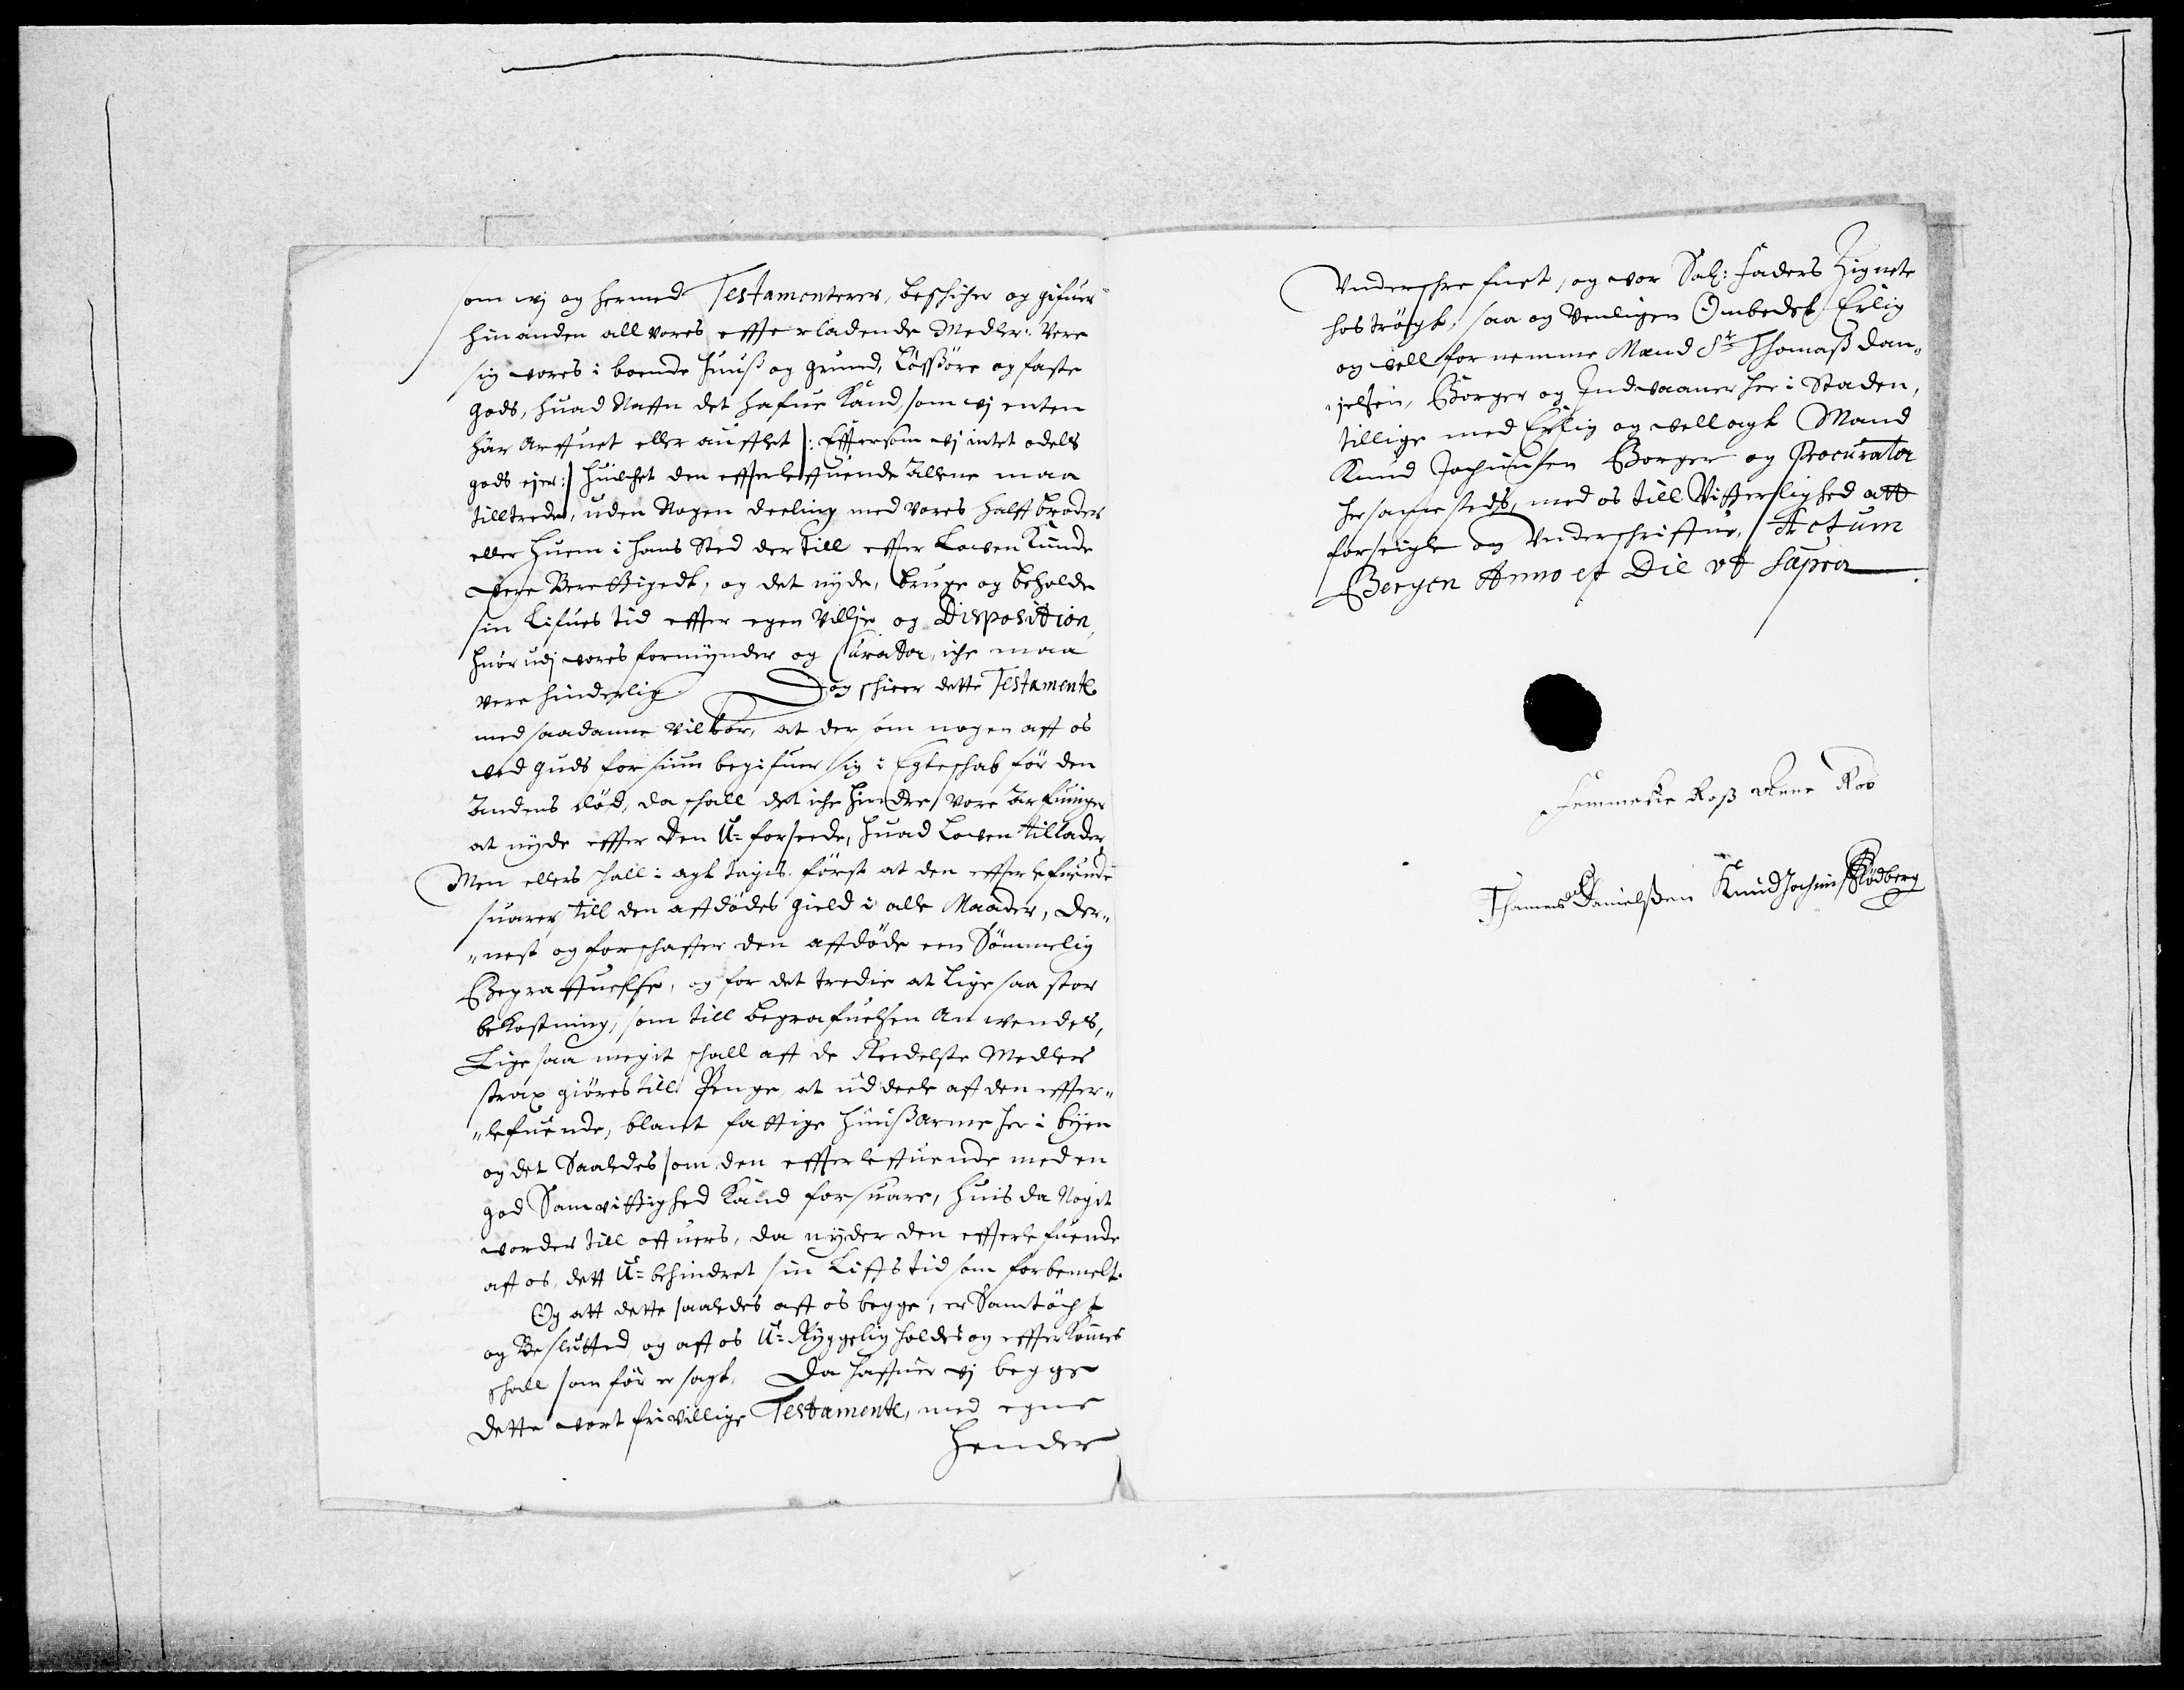 som wj og hermed Testamenterer, beschicher og gifuer
hinanden all vores effterladende Medler: Vere
sig vores i boende Huuß og grund, Lößöre og faste
gods, huad Naffn det hafue Kand, som wj enten
har Arffuet eller aufflet /: Efftersom wj intet odels
gods ejer :/ huilchet den effterleffuende Allene maa
tilltrede, uden Nogen deeling med vores halff broder
eller huem i hans sted der till effter Lowen kunde
vere Berettigedt, og det nyde, bruge og beholde
sin Lifues tid effter egen villje og Disposition,
huor udj vores formynder og Curator, iche maa
vere hinderlig. Dog schier dette Testamente
med saadanne vilkor, at der som nogen aff os
ved Guds forsiun begifuer sig i Egteschab för den
Andens död, da schall det iche hindre vore Arfuinger
at nyde effter den U=forseede, huad Lowen tillader
Men ellers schall i agt tages först at den effterlefuende
suarer till den affdödes gield i alle Maader, der¬
nest og forschaffer den affdöde een Sömmelig
Begraffuelse, og for det tredie at lige saa stor
bekostning, som till begrafuelsen Anwendes,
Lige saa megit schall aff de Reedeste Medler
strax giöres till Penge, at uddeele aff den effter¬
lefuende, blant fattige Huußarme her i byen
og det Saaledes som den effterleffuende med en
god Samvittighed kand forsuare, huis da Nogit
worder till offuers, da nyder den effterlefuende
aff os, dett U=behindret sin Liffs tid som forbemelt.
Og att dette saaledes aff os begge, er Samtöcht
og Beslutted og aff os U=Ryggelig holdes og effterkomes
schall som för er sagt. Da haffuer wj begge
dette wort frivillige Testamente, med egne
Hender
Underschrefuet, og vor Sal: Faders Zignete
hoströgt, saa og Venligen Ombedet Erlig
og well fornemme Mand Sr Thomaß Dan¬
ielsen, Borger og Indvaaner her i Staden,
tillige med Erlig og wellagt Mand
Knud Jochumsen Borger og Procurator
hersamesteds, med os till Vitterlighed att
forseigle og Underschriffue, Actum
Bergen Anno et Die ut supra
Femmetie Roß Anne Ros
Thames Danielßen Knud Jochims Rödberg